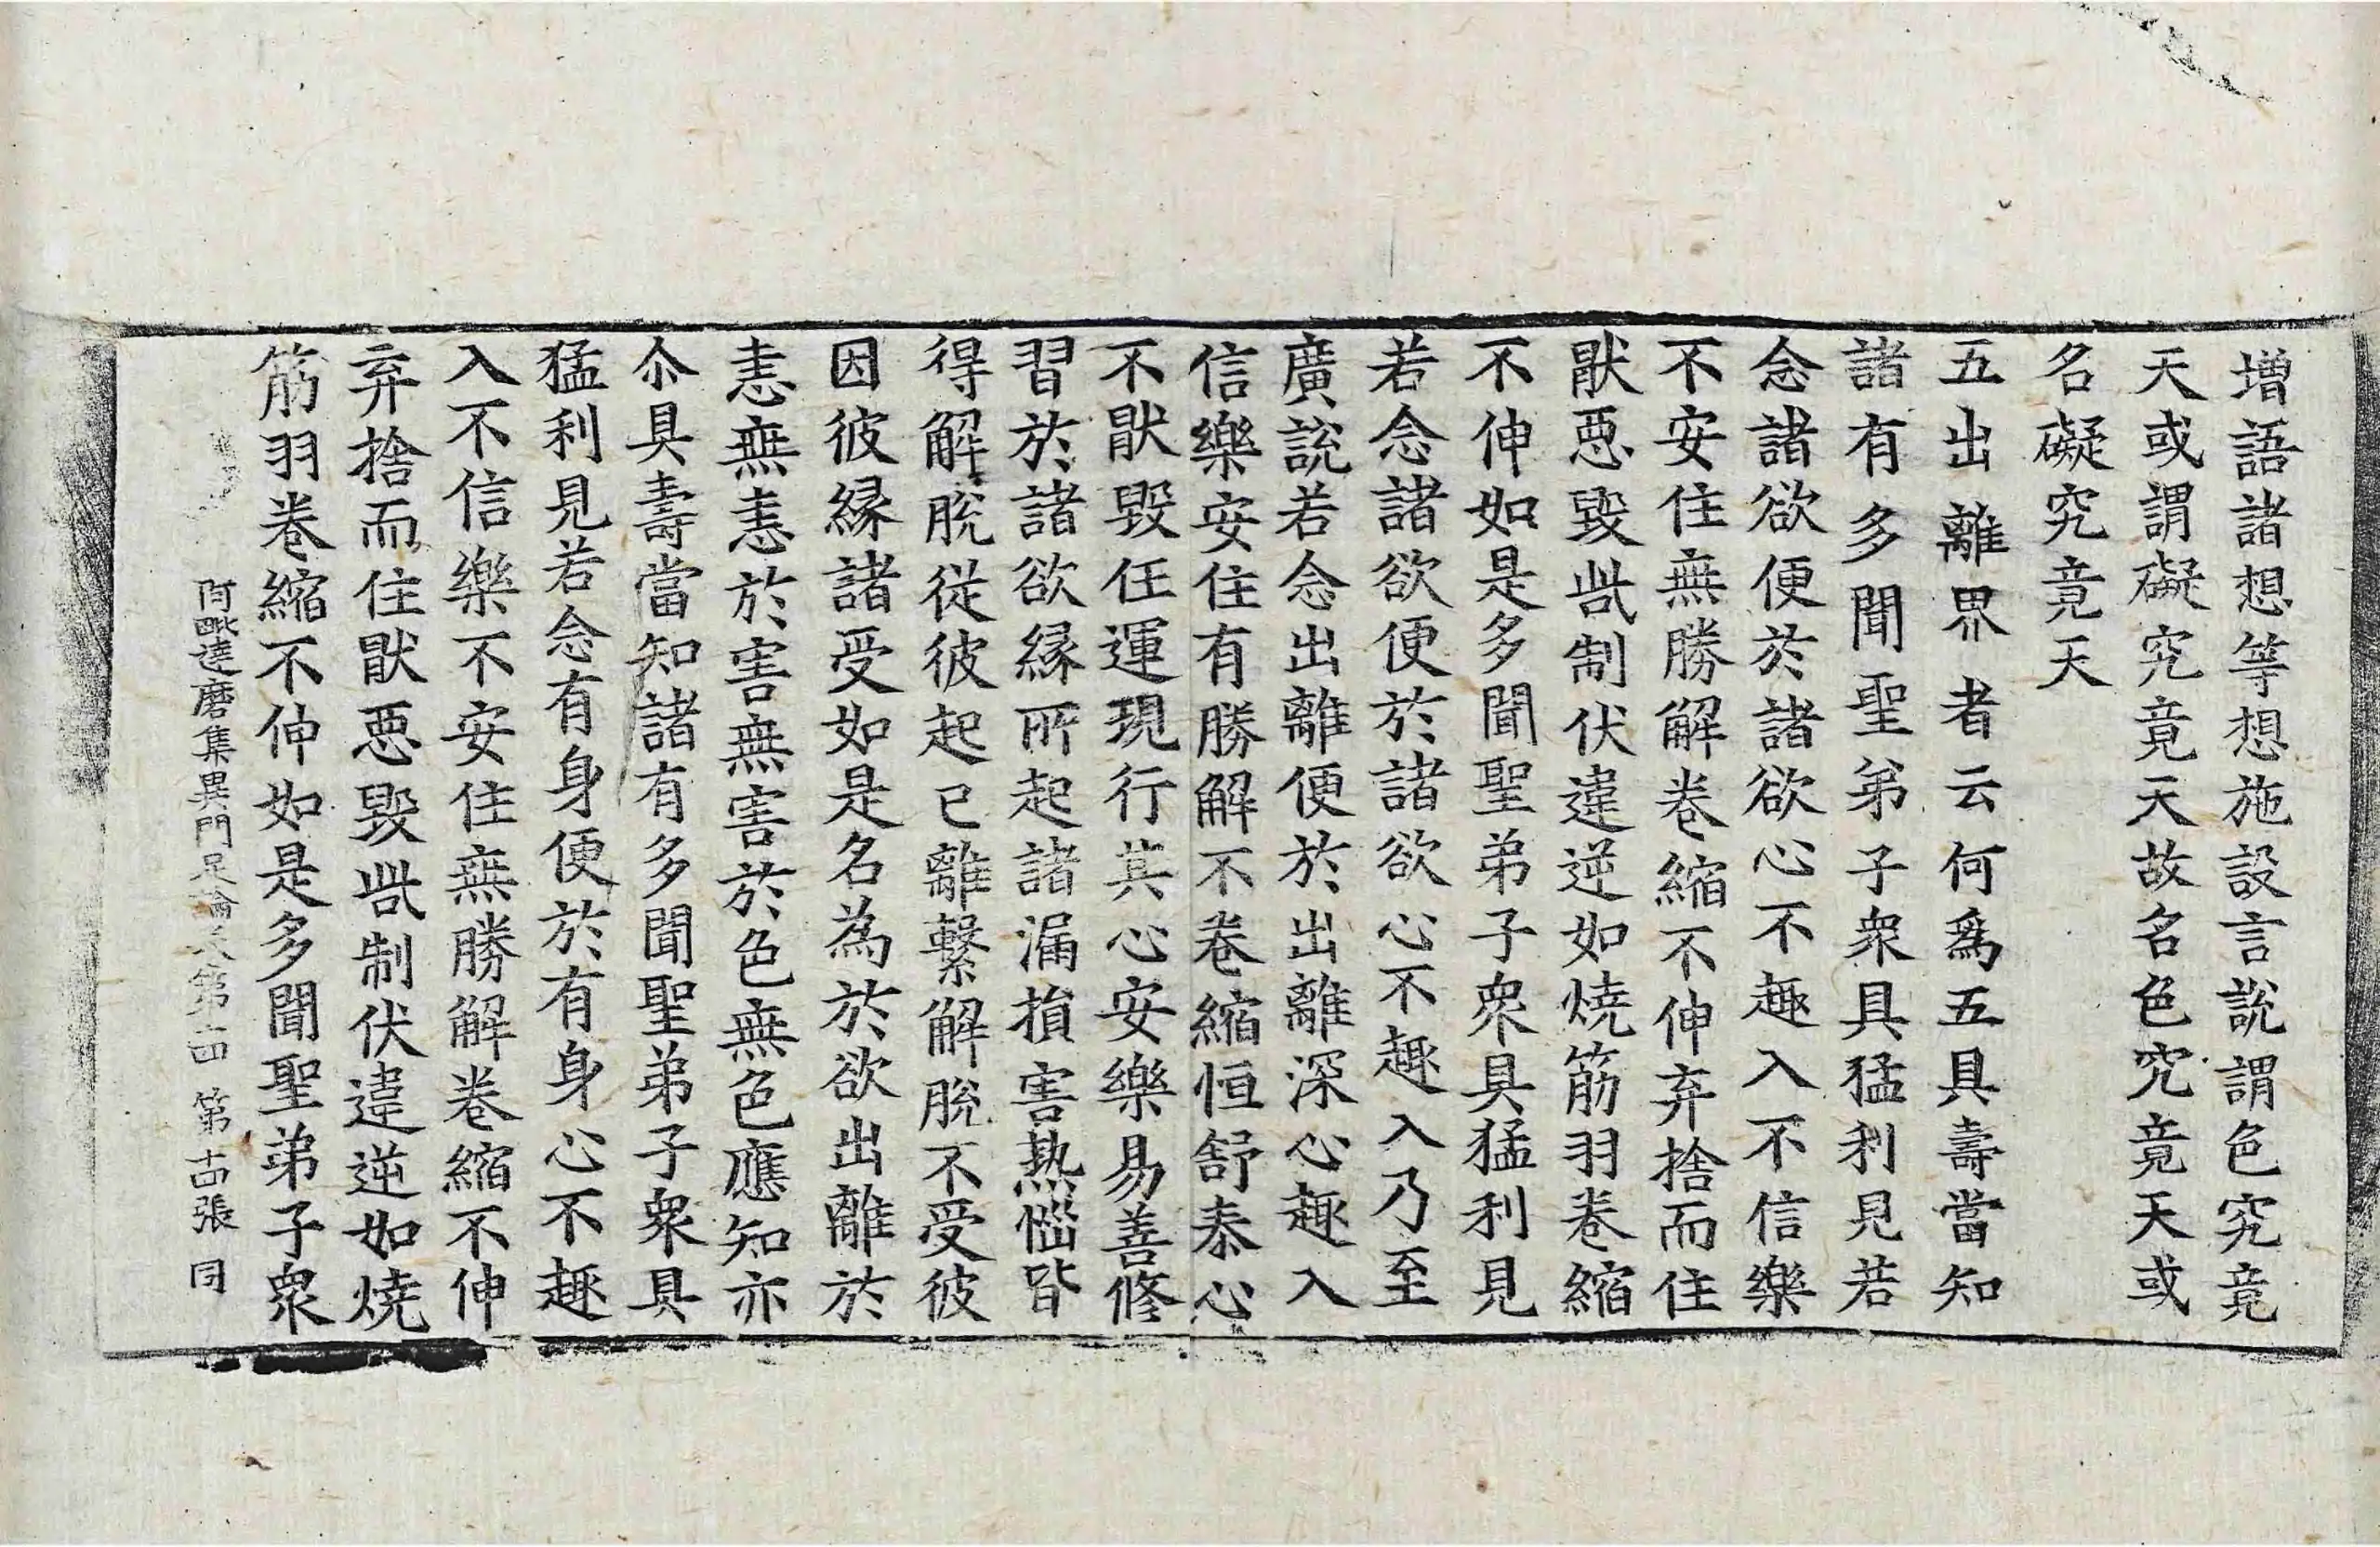 增語諸想等想施設言說謂色究竟
天或謂礙究竟天故名色究竟天或
名礙究竟天
五出離界者云何爲五具壽當知
諸有多聞聖弟子衆具猛利見若
念諸欲便於諸欲心不趣入不信樂
不安住無勝解卷縮不伸弃捨而住
猒惡毀呰制伏違逆如燒筋羽卷縮
不伸如是多聞聖弟子衆具猛利見
若念諸欲便於諸欲心不趣入乃至
廣說若念出離便於出離深心趣入
信樂安住有勝解不卷縮恒舒泰心
不猒毀任運現行其心安樂易善修
習於諸欲緣所起諸漏損害熱惱皆
得解脫從彼起已離繫解脫不受彼
因彼緣諸受如是名為於欲出離於
恚無恚於害無害於色無色應知亦
尒具壽當知諸有多聞聖弟子衆具
猛利見若念有身便於有身心不趣
入不信樂不安住無勝解卷縮不伸
弃捨而住猒惡毀呰制伏違逆如燒
筋羽卷縮不伸如是多聞聖弟子衆
阿毗達磨集異門足論 第十四 第十四張 同